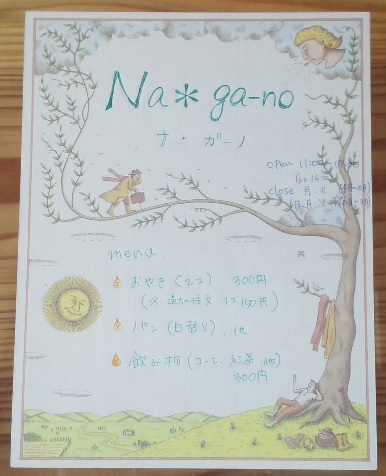 Na*ga-no
ナ・ガーノ
open
close 月 火
menu
おやき(2コ) 300円
(※追加注文 1コ 150円)
パン(日替り)、他
飲み物(コーヒー、紅茶、他)
300円